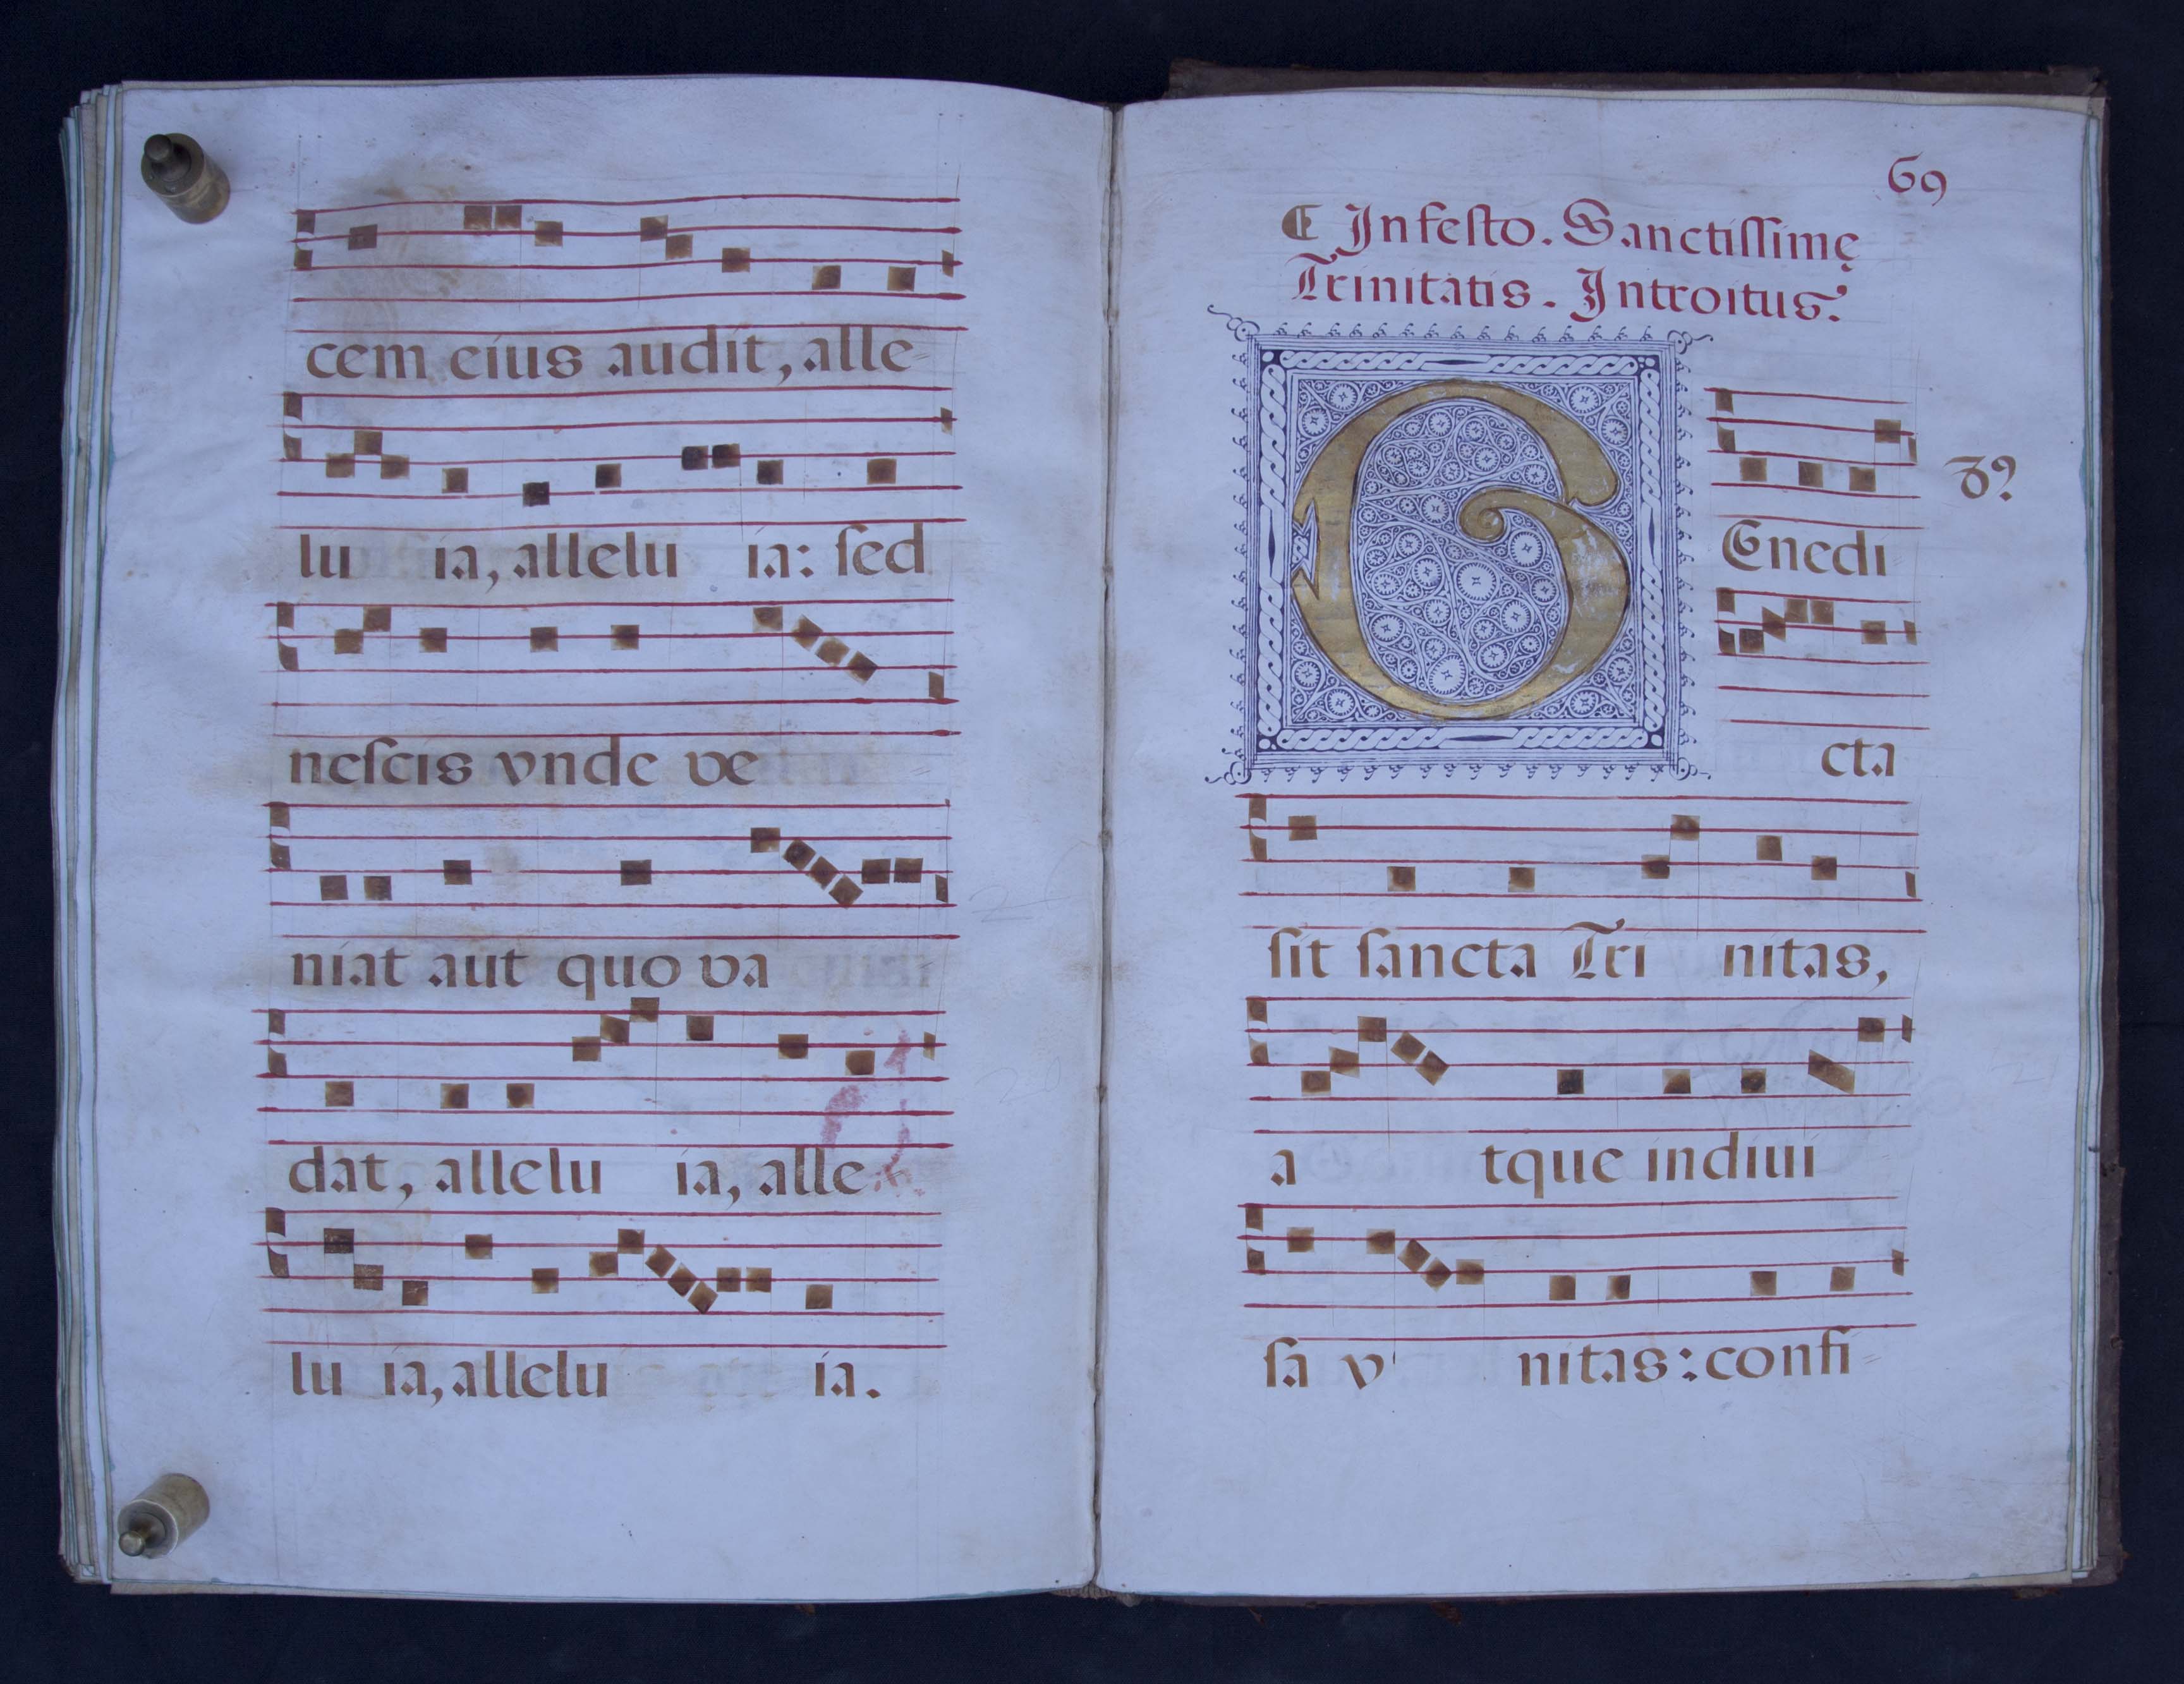 cem eius audit, alle-
lu ia, allelu ia: sed
nescis vnde ve
niat aut quo va
dat, allelu ia, alle
lu ia, allelu ia.
69
In festo. Sanctissimę
Trinitatis. Introitus.
B
Enedi
cta
sit sancta Tri nitas,
a tque indiui
sa v nitas: confi-